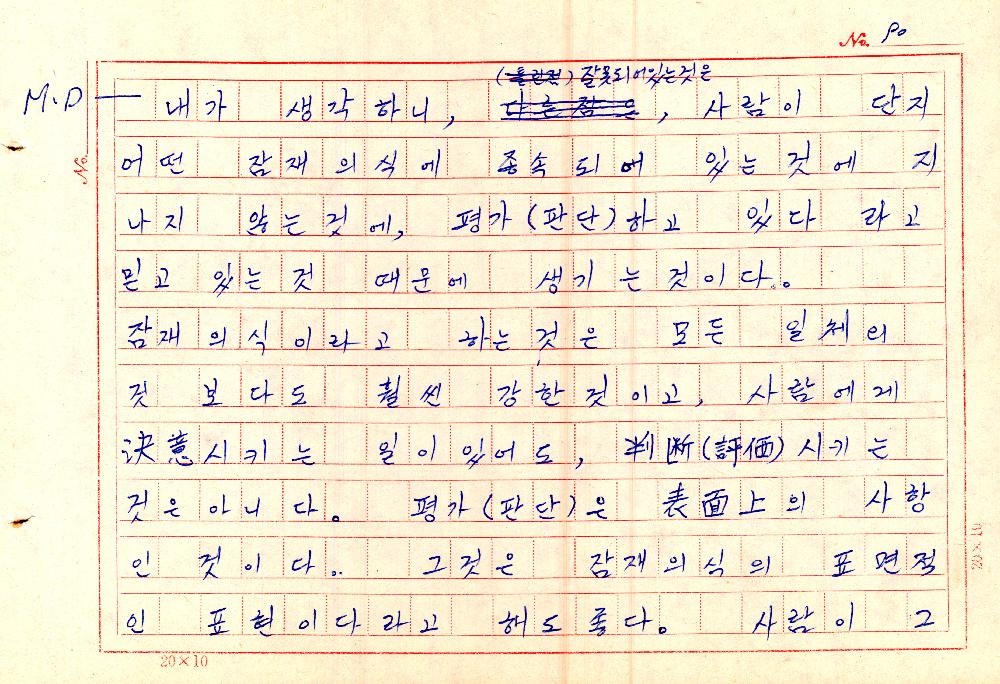 No. 90
(틀린점) 잘못되어있는것은
M.D 내가 생각하니, 다른점은, 사람이 단지
No.
어떤 잠재의식에 종속되어 있는것에 지
나지 않는것에, 평가(판단)하고 있다 라고
믿고 있는것 때문에 생기는것이다.
잠재의식이라고 하는것은 모든 일체의
것 보다도 훨씬 강한것이고, 사람에게
決意시키는 일이있어도, 判断(評価)시키는
것은아니다. 평가(판단)은 表面上의 사항
인 것이다. 그것은 잠재의식의 표면적
인 표현이다라고 해도좋다. 사람이 그
20×10
20×10